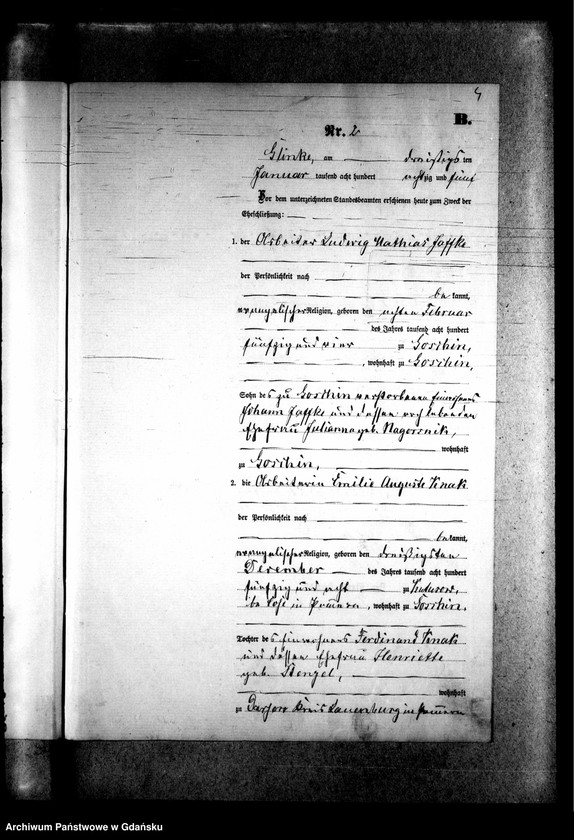 4
B.
Nr. 2
Glinke, am dreißigs ten
Januar tausend acht hundert achtzig und fünf
Vor dem unterzeichneten Standesbeamten erschienen heute zum Zweck der
Eheschließung:
1. der Arbeiter Ludwig Mathias Jaffke
der Persönlichkeit nach
be kannt,
evangelischer Religion, geboren den achten Februar
des Jahres tausend acht hundert
fünfzig und vier zu Goschin,
, wohnhaft zu Goschin,
Sohn des zu Goschin verstorbenen Einwohners
Johann Jaffke und dessen noch lebenden
Ehefrau Julianna geb. Nagorsnik,
wohnhaft
zu Goschin,
2. die Arbeiterin Emilie Auguste
der Persönlichkeit nach
be kannt,
evangelischer Religion, geboren den dreißigsten
Dezember des Jahres tausend acht hundert
fünfzig und acht zu
in Pommern, wohnhaft zu Goschin,
Tochter des Einwohners Ferdinand
und dessen Ehefrau Henriette
geb.
wohnhaft
zu Kreis Lauenburg in Pommern
Archiwum Państwowe w Gdańsku